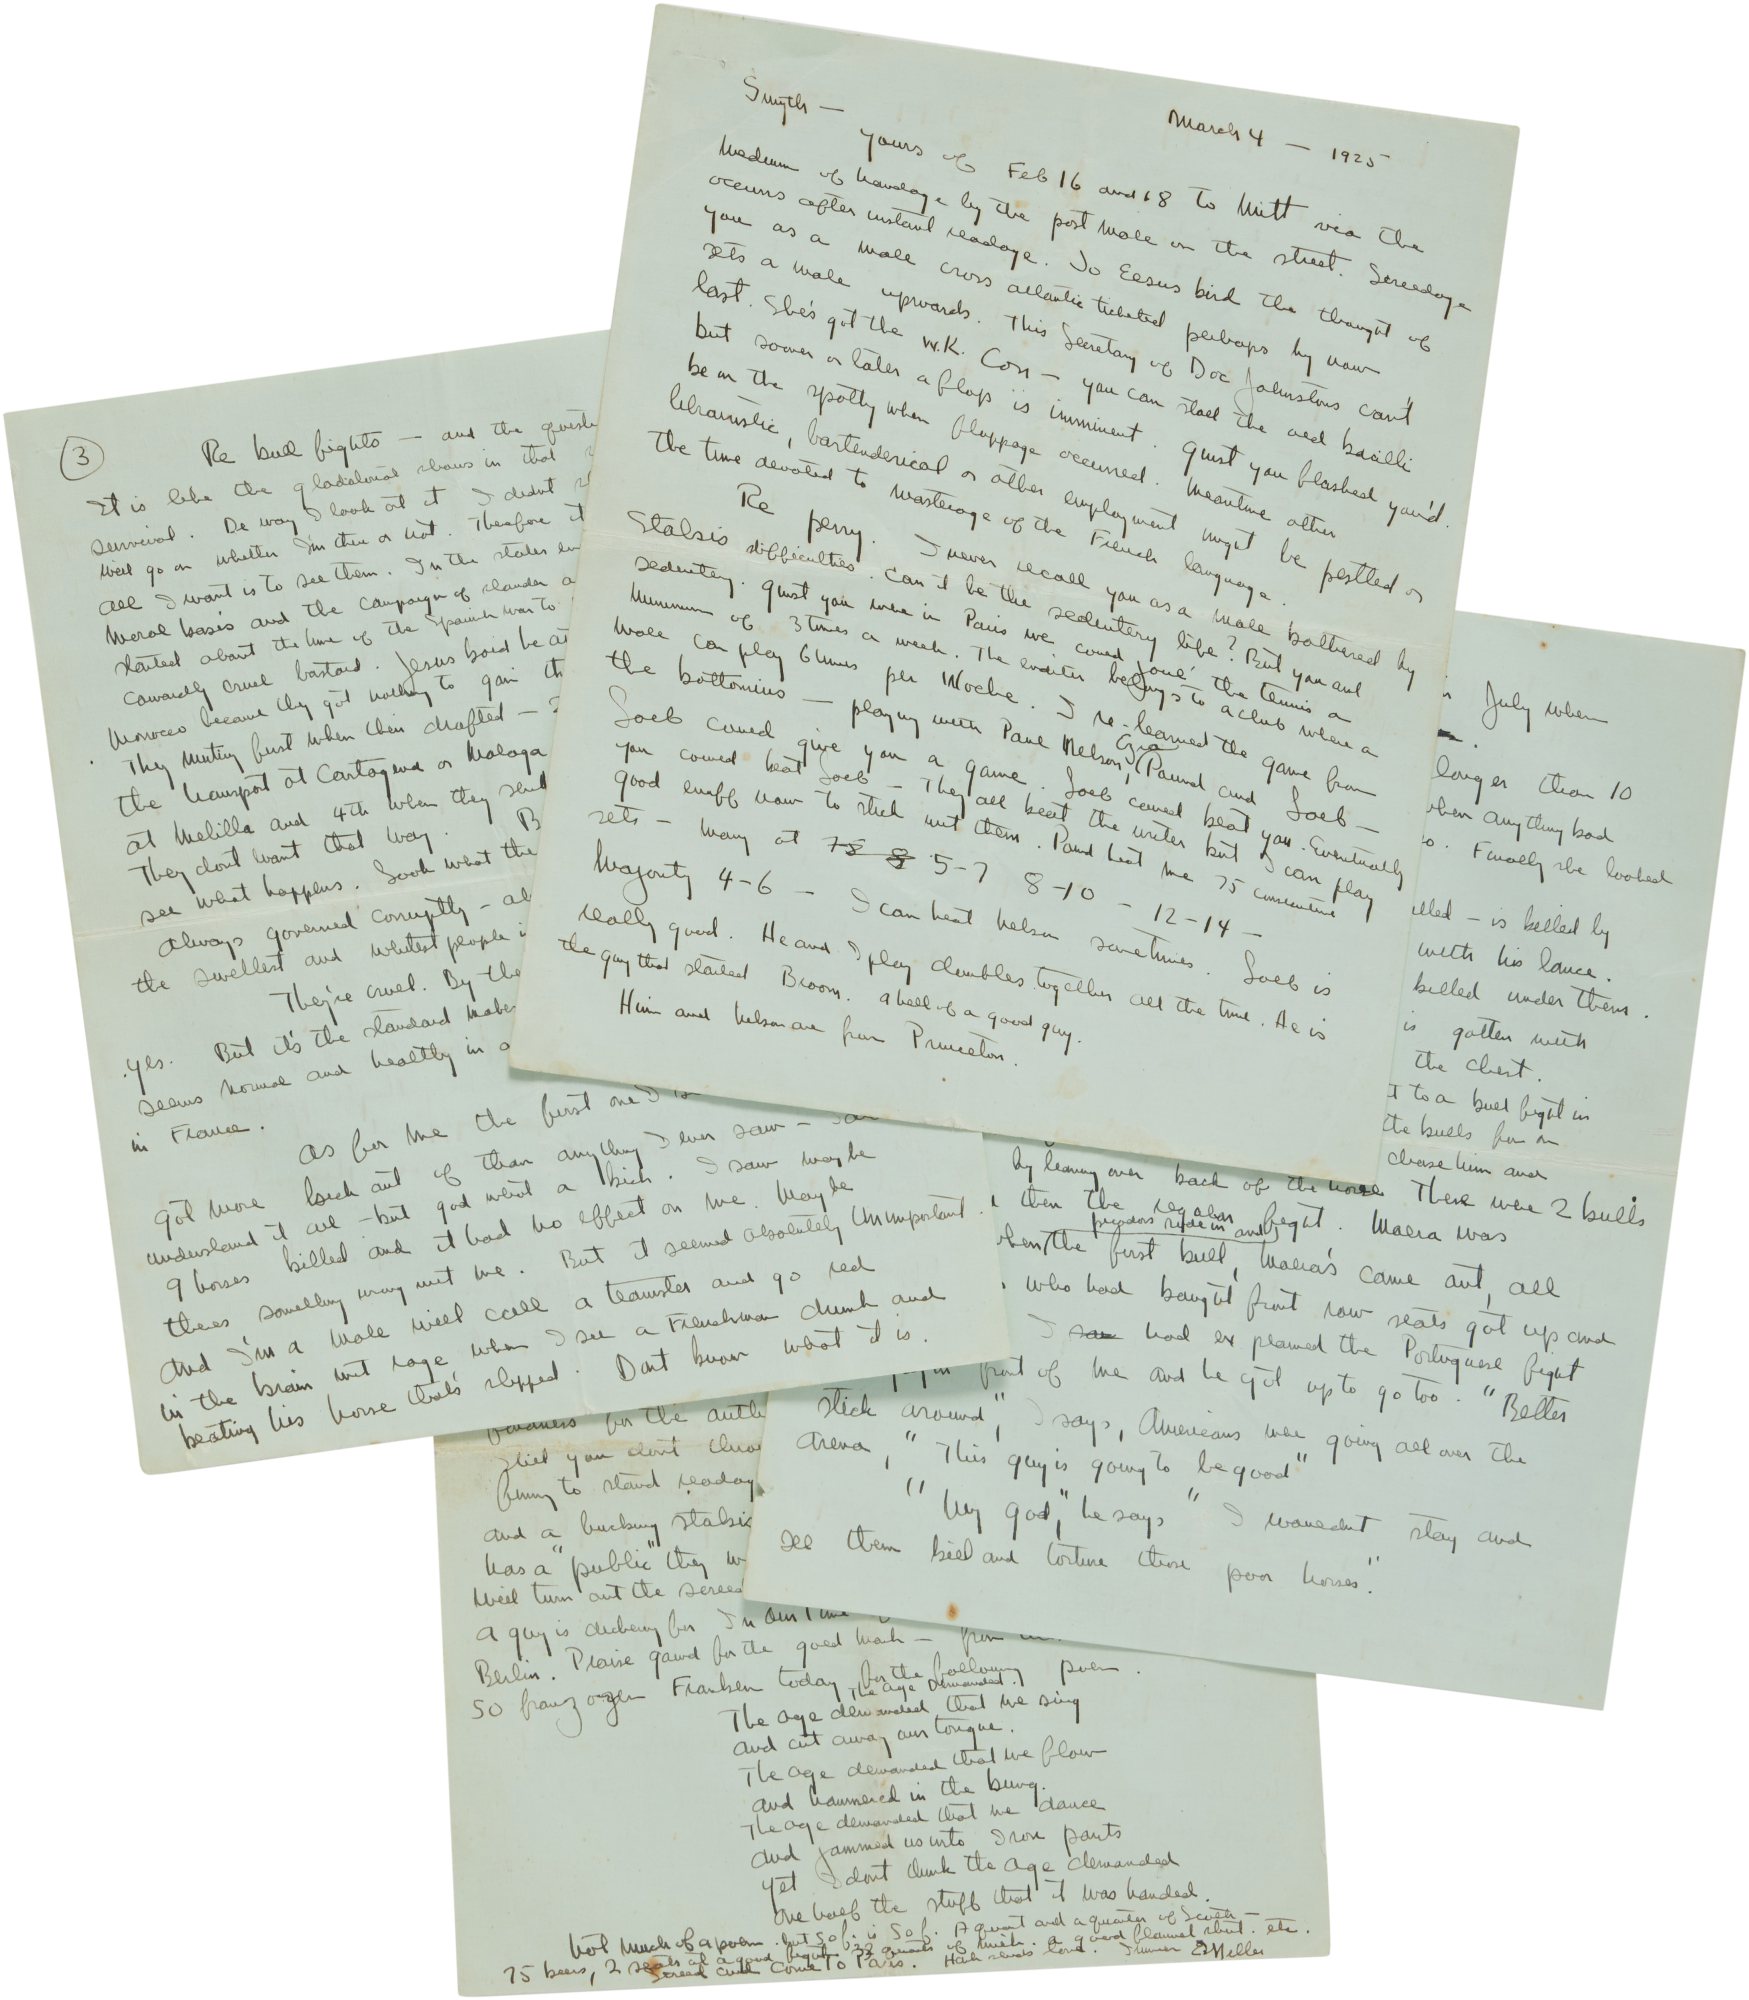 March 4 — 1925
Smyth —
Yours of Feb 16 and 18 to Mitt via the
medium of handage by the post male on the street. Screedage
occurs after instant readage. Jo Eesus bird the thought of
you as a male cross atlantic ticketed perhaps by now
sets a male upwards. This Secretary of Doc Johnstons can't
last. She's got the W.K. Con — you can stall the old bacilli
but sooner or later a flop is imminent. Gust you flashed you'd
be on the spotty when floppage occurred. Meantime other
libraristic, bartenderical or other employment might be pestled or
the time devoted to masterage of the French language.
Re perry. I never recall you as a male bothered by
Stalsis difficulties. Can it be the sedentery life? But you aint
sedentery. Gust you were in Paris we could joué the tennis a
minimum of 3 times a week. The writer belongs to a club where a
male can play 6 times per Woche. I re-learned the game from
the bottomius — playing with Paul Nelson, Ezra Pound and Loeb —
Loeb could give you a game. Loeb could beat you. Eventually
you could beat Loeb — They all beat the writer but I can play
good enuff now to stick mit them. Pound beat me 75 consecutive
sets — many at 75 8 5-7 8-10 — 12-14 —
Majority 4-6 — I can beat Nelson sometimes. Loeb is
really good. He and I play doubles together all the time. He is
the guy that started Broom. a hell of a good guy.
Him and Nelson are from Princeton.
3
Re bull fights — and the
It is like the gladiatorial shows in that
survival. De way I look at it I didnt
will go on whether I'm there or not. Therefore it
all I want is to see them. In the states
moral basis and the campaign of slander
started about the time of the Spanish war to
cowardly cruel bastard. Jesus boid he
Morocco because they got nothing to gain
They mutiny first when their drafted —
the transport at Cartagena or Malaga
at Melilla and 4th when they send
They dont want that way. B
see what happens. Look what the
always governed corruptly —
the swellest and whitest people
They're cruel. By the
yes. But it's the standard
seems normal and healthy in
in France.
as for me the first one I
got more kick out of than anything I ever saw —
understand it all — but god what a kick. I saw maybe
9 horses killed and it had no effect on me. Maybe
theres something wrong mit me. But it seemed absolutely unimportant.
and I'm a male will call a teamster and go red
in the brain mit rage when I see a Frenchman drunk and
beating his horse that's slipped. Dont know what it is.
July when
longer than 10
when anything bad
Finally she looked
killed — is killed by
with his lance.
killed under them.
is gotten with
the chest.
to a bull fight in
the bulls from
chase him and
by leaning over back of the horse There were 2 bulls
then the regular fight. Maera was
picadors rode in and
when the first bull, Maera's came out, all
who had bought front row seats got up and
I saw had explained the Portuguese fight
front of me and he got up to go too. "Better
stick around", I says, Americans were going all over the
arena, "This guy is going to be good"
"My god", he says "I wouldnt stay and
see them kill and torture those poor horses."
fondness for the
you dont
funny to stand readage
and a bucking stalsis
has a "public" they
will turn out the screed
a guy is dickering for In Our Time
Berlin. Praise gawd for the good mark — from
50 franzosen Franken today for the following poem.
The Age Demanded.
The age demanded that we sing
and cut away our tongue.
The age demanded that we flow
and hammered in the bung.
The age demanded that we dance
and jammed us into Iron pants
Yet I dont think the age demanded
one half the stuff that it was handed.
Not much of a poem. but 50 f. is 50 f. A quart and a quarter of Scotch —
75 beers, 2 seats at a good fight. 33 quarts of milk. a good flannel shirt. etc.
Screed and come to Paris. Hash sends love.